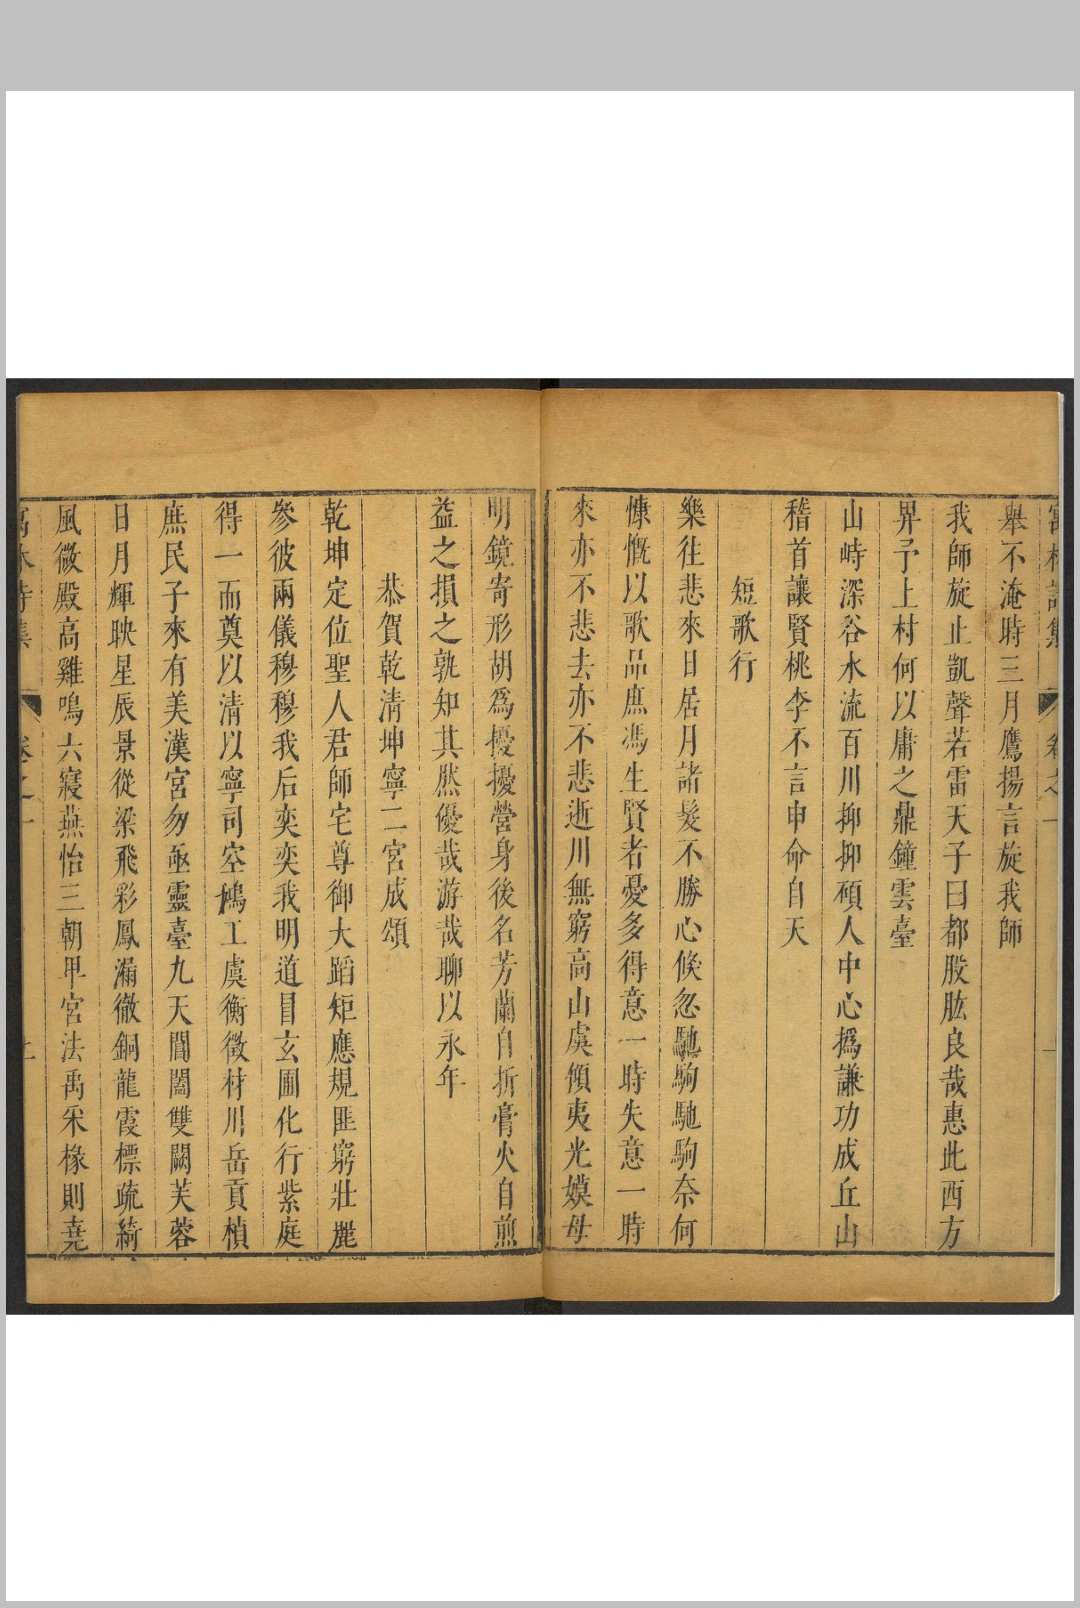 舉不淹時三月鷹揚言旋我師
我師旋止凱聲若雷天子曰都股肱良哉惠此西方
畀予上村何以庸之鼎鐘雲臺
山峙深谷水流百川抑抑碩人中心撝謙功成丘山
稽首讓賢桃李不言申命自天
短歌行
樂往悲來日居月諸髮不勝心倏忽馳駒馳駒奈何
慷慨以歌品庶馮生賢者憂多得意一時失意一時
來亦不悲去亦不悲逝川無窮高山虞傾夷光嫫母
明鏡寄形胡爲擾擾營身後名芳蘭自折膏火自煎
益之損之孰知其然優哉游哉聊以永年
恭賀乾清坤寧二宮成頌
乾坤定位聖人君師宅尊御大蹈矩應規匪窮壯麗
參彼兩儀穆穆我后奕奕我明道冒玄圃化行紫庭
得一而奠以清以寧司空鳩工虞衡徵材川岳貢楨
庶民子來有美漢宮勿亟靈臺九天閶闔雙闕芙蓉
日月輝映星辰景從梁飛彩鳳漏徹銅龍霞標疏綺
風微殿高雞鳴六寢燕怡三朝甲宮法禹采椽則堯